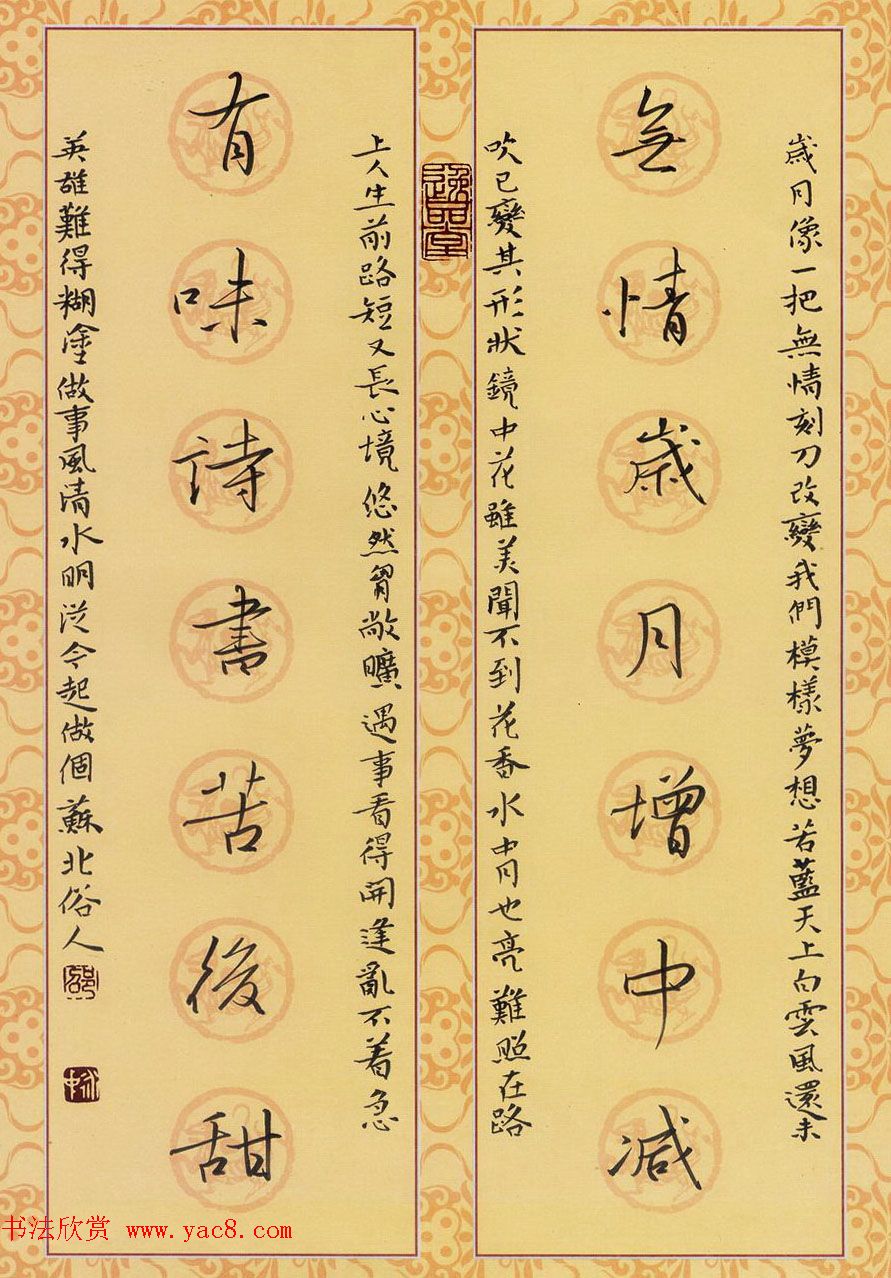 歲月像一把無情刻刀改變我們模樣夢想若藍天上白雲風還未
無情歲月增中減
吹已變其形狀鏡中花雖美聞不到花香水中月也亮難照在路
逸品堂
上人生前路短又長心境悠然胸敞曠遇事看得開逢亂不著急
有味詩書苦後甜
英雄難得糊塗做事風清水明從今起做個蘇北俗人
书法欣赏 www.yac8.com